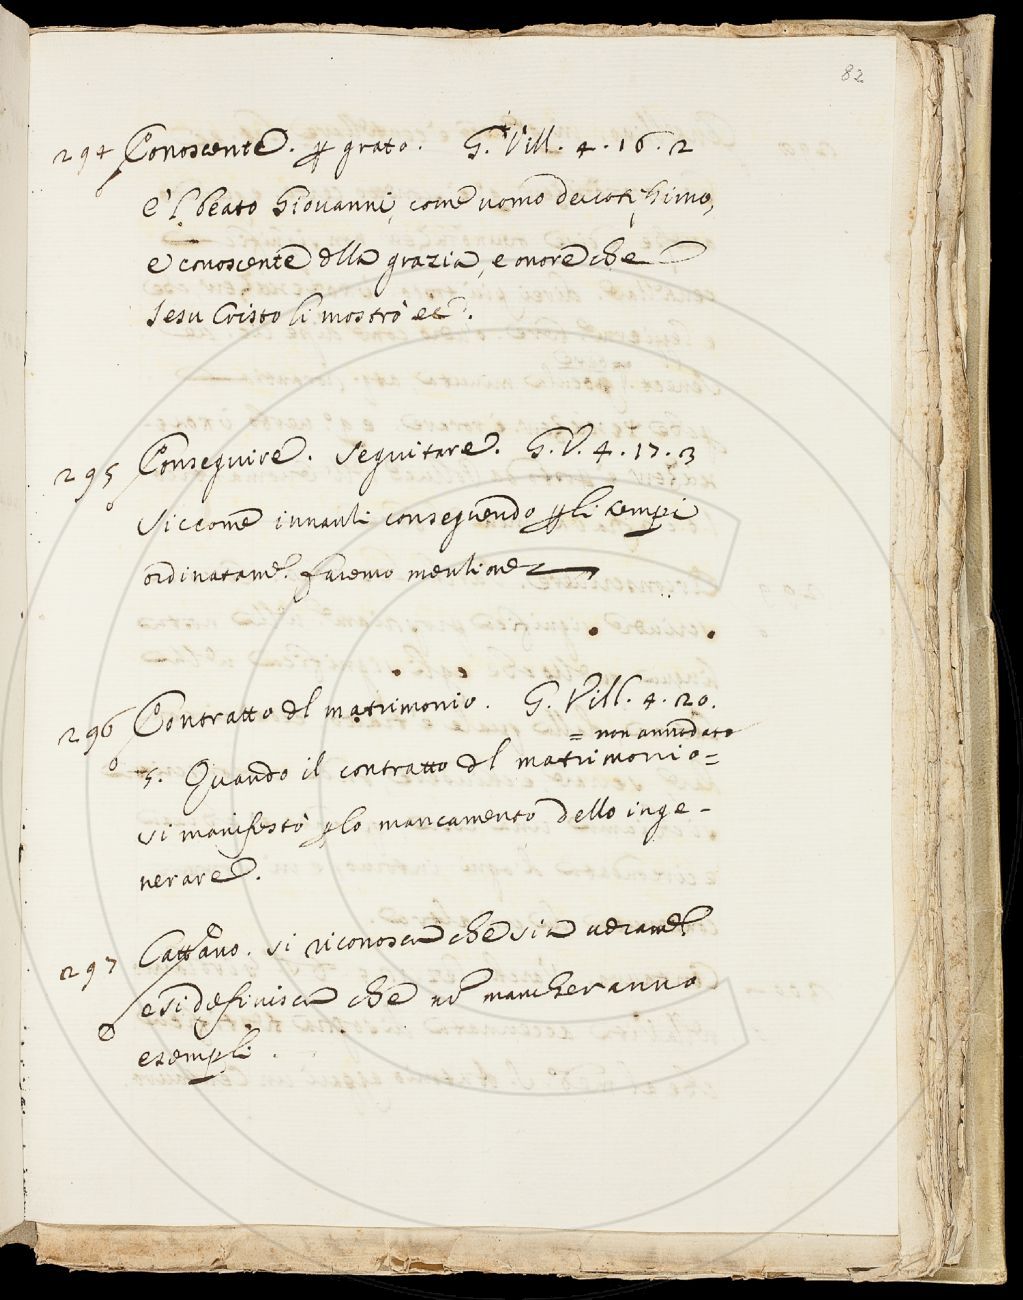 82
294 Conoscente. p grato. G. Vill. 4. 16. 2
E 'l beato Giovanni, come uomo devotissimo,
e conoscente dlla grazia, e onore che
Jesu Cristo li mostrò ec.
295 Conseguire. Seguitare. G. V. 4. 17. 3
Siccome innanti conseguendo p li tempi
ordinatame. faremo mentione
296 Contratto dl matrimonio. G. Vill. 4. 20.
= non annodato
5. Quando il contratto dl matrimonio =
si manifestò p lo mancamento dello inge-
nerare.
297 Cattano. si riconosca che sia veramte
e si difinisca che nè mancheranno
esempli.